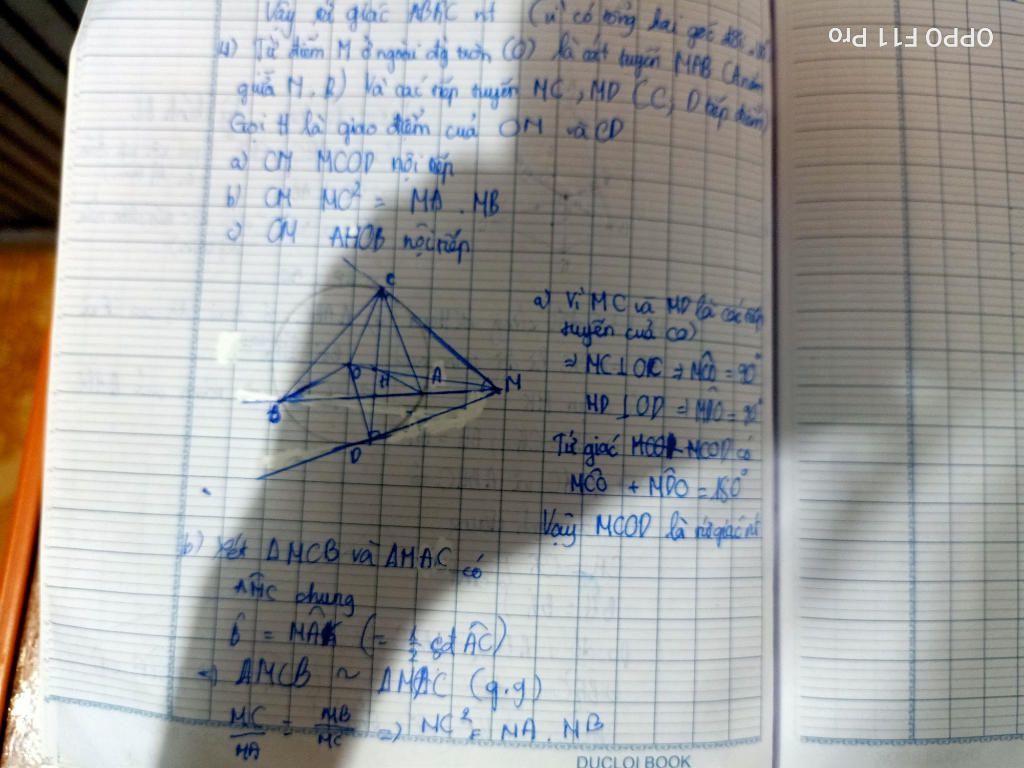 Vậy tứ giác ABAC nt (vì có tổng hai góc
4) Từ điểm M ở ngoài đg tròn (O) là cát tuyến MAB (A nằm
giữa M, B) và các tiếp tuyến MC, MD (C, D tiếp điểm)
Gọi H là giao điểm cuả OM và CD
a) CM MCOD nội tiếp
b) CM MC² = MA . MB
c) CM AHOB nội tiếp
C
O H A M
B
D
a) Vì MC và MD là các tiếp
tuyến cuả (O)
=> MC ⊥ OC => MCO = 90°
MD ⊥ OD => MDO = 90°
Tứ giác MCOD có
MCO + MDO = 180°
Vậy MCOD là tứ giác nt
b) Xét ΔMCB và ΔMAC có
AMC chung
B = (= 1/2 sđ AC)
=> ΔMCB ~ ΔMAC (g.g)
MC/MA = MB/MC => MC² = MA . MB
OPPO F11 Pro
DUCLOI BOOK